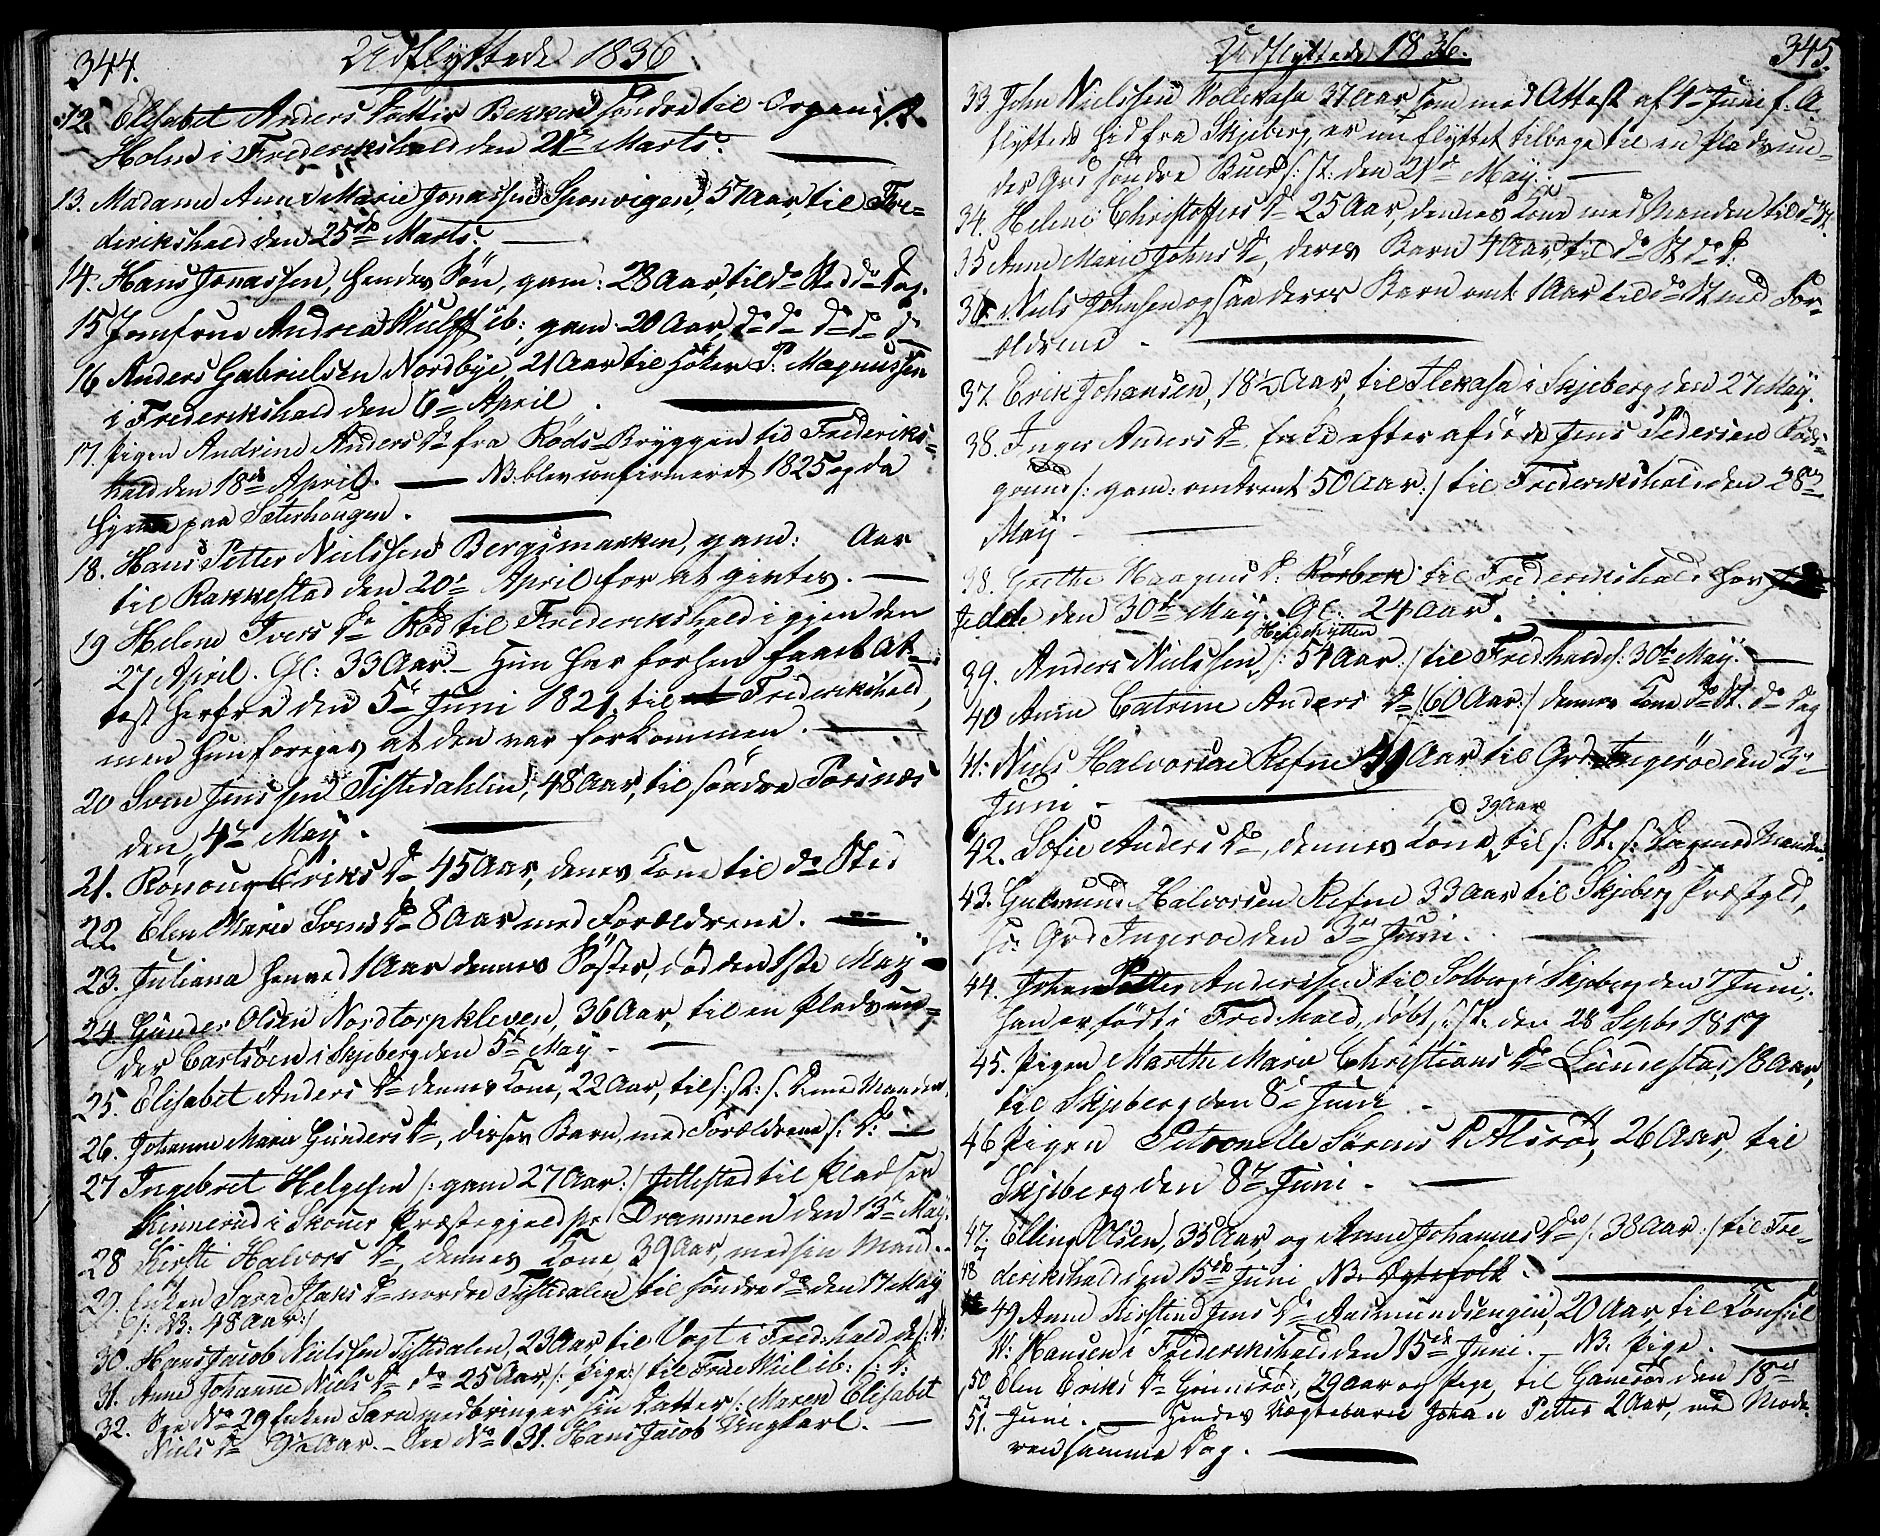 344.
Udflyttede 1836.
12. Elisabet Anders Datter Bekken søndre til Organist
Holm i Frederikshald den 21de Marts.
13. Madame Anne Marie Jonassen Sponvigen, 51 Aar, til Fre-
derikshald den 25de Marts.
14. Hans Jonassen, hendes Søn, gam: 28 Aar, til do Sted do Dag.
15 Jomfrue Andrea Wulff ib: gam 20 Aar, do do do do do
16 Anders Gabrielsen Nordbye 21 Aar til Høker P. Magnussen
i Frederikshald den 6te April.
17. Pigen Andrine Anders Dr fra Røds-Bryggen til Frederiks-
hald den 18de April. NB: blev confirmeret 1825 og da
paa Sæterhougen.
18. Hans Petter Nielssen Bergsmarken, gam: Aar
til Rakkestad den 20de April for at giftes.
19 Helene Ivers Dr Rød til Frederikshald igjen den
27 April. Gl: 33 Aar. Hun har forhen faaet At-
test herfra den 5te Juni 1821 til Frederikshald,
men hun foregav at den var forkommen.
20 Sven Jenssen Tistedahlen, 48 Aar, til søndre Torsnæs
den 4de May.
21. Rønoug Eriks Dr 45 Aar, dennes Kone til do Sted
22. Elen Marie Svens Dr 8 Aar med Forældrene.
23. Juliana henved 1 Aar dennes Søster, død den 1ste May
24. Gunder Olsen Nordtorpkleven, 36 Aar, til en Plads un-
der Carlsøen i Skjeberg den 5te May
25. Elisabet Anders Dr dennes Kone, 22 Aar, til s: St: s: D. med Manden.
26. Johanne Marie Gunders Dr, disses Barn, med Forældrene s: D:
27 Ingebret Helgesen /: gam 27 Aar :/ Jellestad til Pladsen
Kinnerud i Skouer Præstegjeld pr Drammen den 13de May.
28 Kirsti Halvors Dr, dennes Kone 39 Aar, med sin Mand.
29. Enken Sara Isaks Dr nordre Tistedalen til søndre do den 17 May
/: NB: 48 Aar :/
30. Hans Jacob Nielssen Tistedalen, 23 Aar til Vogt i Fredrhald
31. Anne Johanne Niels Dr do 25 Aar, /: Pige :/ til Frue Wiel ib: s: D:
32. See No 29 Enken Sara medbringer sin Datter /: Maren Elisabet
Niels Dr 9½ Aar. See No 31. Hans Jacob Ungkarl.
Udflyttede 1836.
345.
33 John Nielssen 37 Aar som med Attest af 4de Juni f. A.
flyttede hid fra Skjeberg, er nu flyttet tilbage til en Plads un-
der Grd søndre Buer s: St: den 21de May.
34. Helene Christoffers Dr 25 Aar, dennes Kone med Manden til do St.
35 Anne Marie Johns Dr, deres Barn 4 Aar, til do St do D.
36. Niels Johnsen ogsaa deres Barn omt: 1 Aar til do St med For-
ældrene.
37. Erik Johansen, 18½ Aar, til i Skjeberg den 27 May.
38. Inger Anders Dr, Enke efter afdøde Jens Pedersen Røds-
/: gam: omtrent 50 Aar :/ til Frederikshald den 28de
May
98. Grethe Haagens D. Rørbek til Frederikshald for
den 30te May. Gl: 24 Aar.
39. Anders Nielssen, /: 54 Aar :/ til Fredrhald s: 30te May.
40 Anne Catrine Anders Dr /: 60 Aar :/ dennes Kone do St. do Dag
41. Niels Halvorsen Refne 41 Aar til Grd Ingerøe den 3de
Juni
39 Aar
42. Sofie Anders Dr, dennes Kone, til s: St. s: Dag med Manden
43. Gulmund Halvorsen Refne 33 Aar til Skjeberg Præstgld,
Grd Ingeroe den 3de Juni.
44. Johan Petter Anderssen til Solberg i Skjeberg den 7 Juni.
han er født i Fredrhald, døbt s. St. den 28 Septbr 1817
45. Pigen Marthe Marie Christians Dr Lundestad, 18 Aar,
til Skjeberg den 8de Juni
46 Pigen Petronelle Sørens D. Alsrød, 26 Aar, til
Skjeberg den 8de Juni
47. Elling Olsen, 35 Aar, og Anne Johannes Dr /: 38 Aar :/ til Fre-
48 derikshald den 15de Juni NB. Egtefolk.
49 Anne Kirstine Jens Dr Aasmundsengen, 20 Aar, til Konsul
W: Hansen i Frederikshald den 15de Juni. NB. Pige.
50. Elen Eriks Dr Grimsrød, 29 Aar og Pige, til Gamrød den 18de
51. Juni. Hendes Uægtebarn Johan Petter 2 Aar, med Mode-
ren samme Dag.